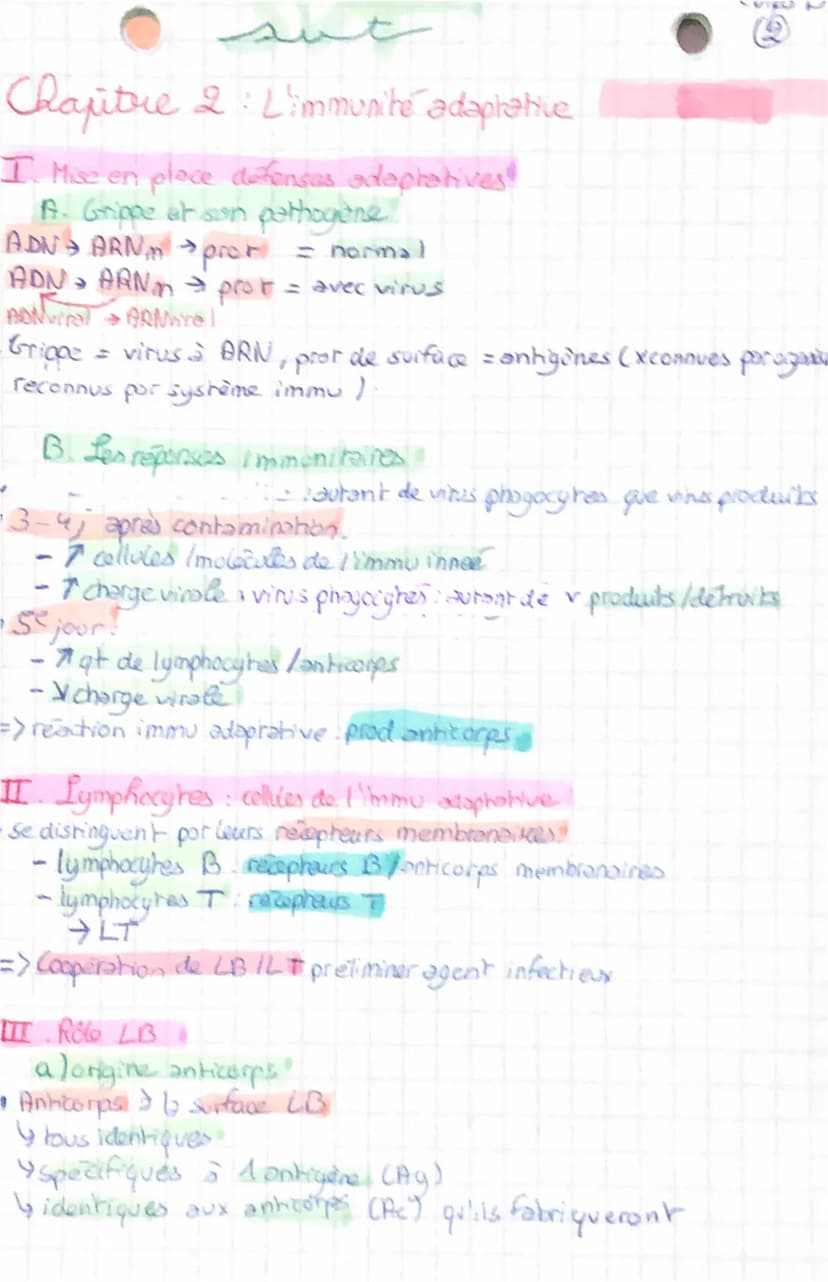 svt
②
Chapitre 2 : L'immunité adaptative
I. Mise en place défenses adaptatives
A. Grippe et son pathogène
ADN → ARNm → prot = normal
ADN → ARNm → prot = avec virus
ADN viral → ARN viral
Grippe = virus à ARN, prot de surface = antigènes (x connues par
reconnus par système immu)
B. Les réponses immunitaires
: autant de virus phagocytés que virus produits
3-4j après contamination.
- ↑ cellules /molécules de l'immu innée
- ↑ charge virale, virus phagocytés : autant de v produits/détruits
5e jour :
- ↗ qt de lymphocytes /anticorps
- ↘ charge virale
=> réaction immu adaptative. prod anticorps
II. Lymphocytes : cellules de l'immu adaptative
se distinguent par leurs récepteurs membranaires.
- lymphocytes B : récepteurs B / anticorps membranaires
- lymphocytes T : récepteurs T
→ LT
=> Coopération de LB / LT pr éliminer agent infectieux
III. Rôle LB
a) origine anticorps
• Anticorps à la surface LB
↳ tous identiques
↳ spécifiques à 1 antigène (Ag)
↳ identiques aux anticorps (Ac) qu'ils fabriqueront